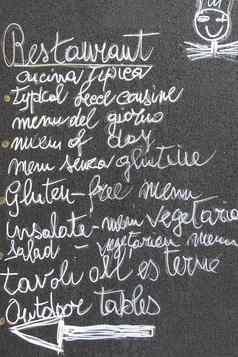 Restaurant
cucina tipica
typical food cousine
menu del giorno
menu of day
menu senza glutine
Gluten-free menu
insalate-menu vegetaria
salad - vegetarian menu
tavoli all'esterno
Outdoor tables